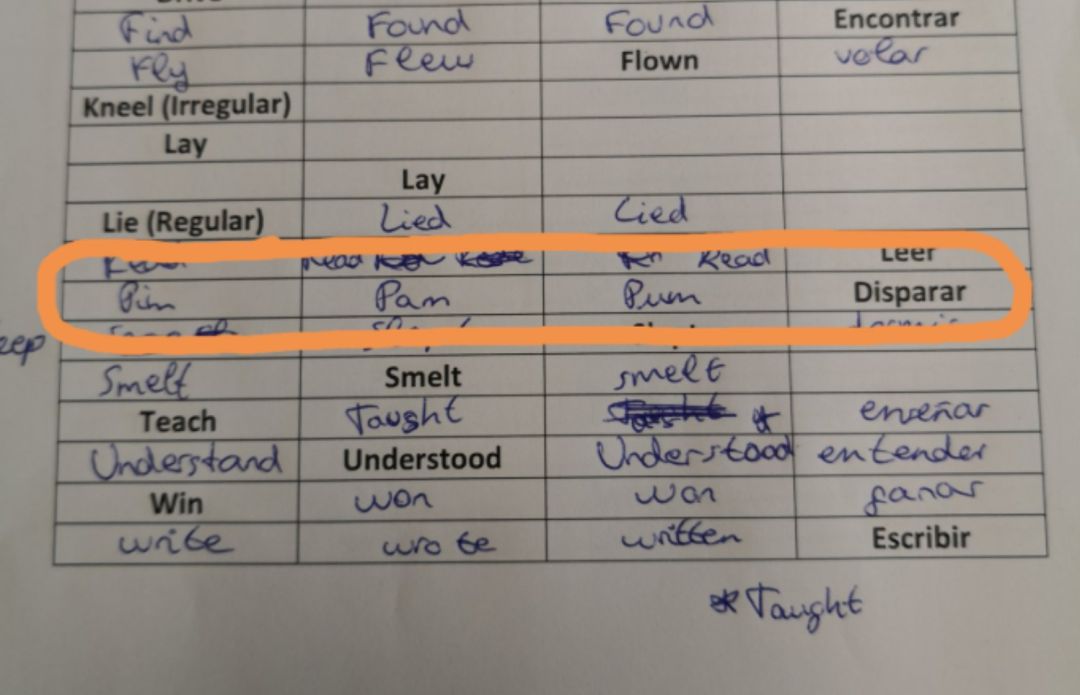 Find Found Found Encontrar
Fly Flew Flown volar
Kneel (Irregular)
Lay
Lay
Lie (Regular) Lied Lied
Read Read Leer
Pim Pam Pum Disparar
eep
Smelt Smelt smelt
Teach Taught enseñar
Understand Understood Understood entender
Win won won ganar
write wrote written Escribir
* Taught